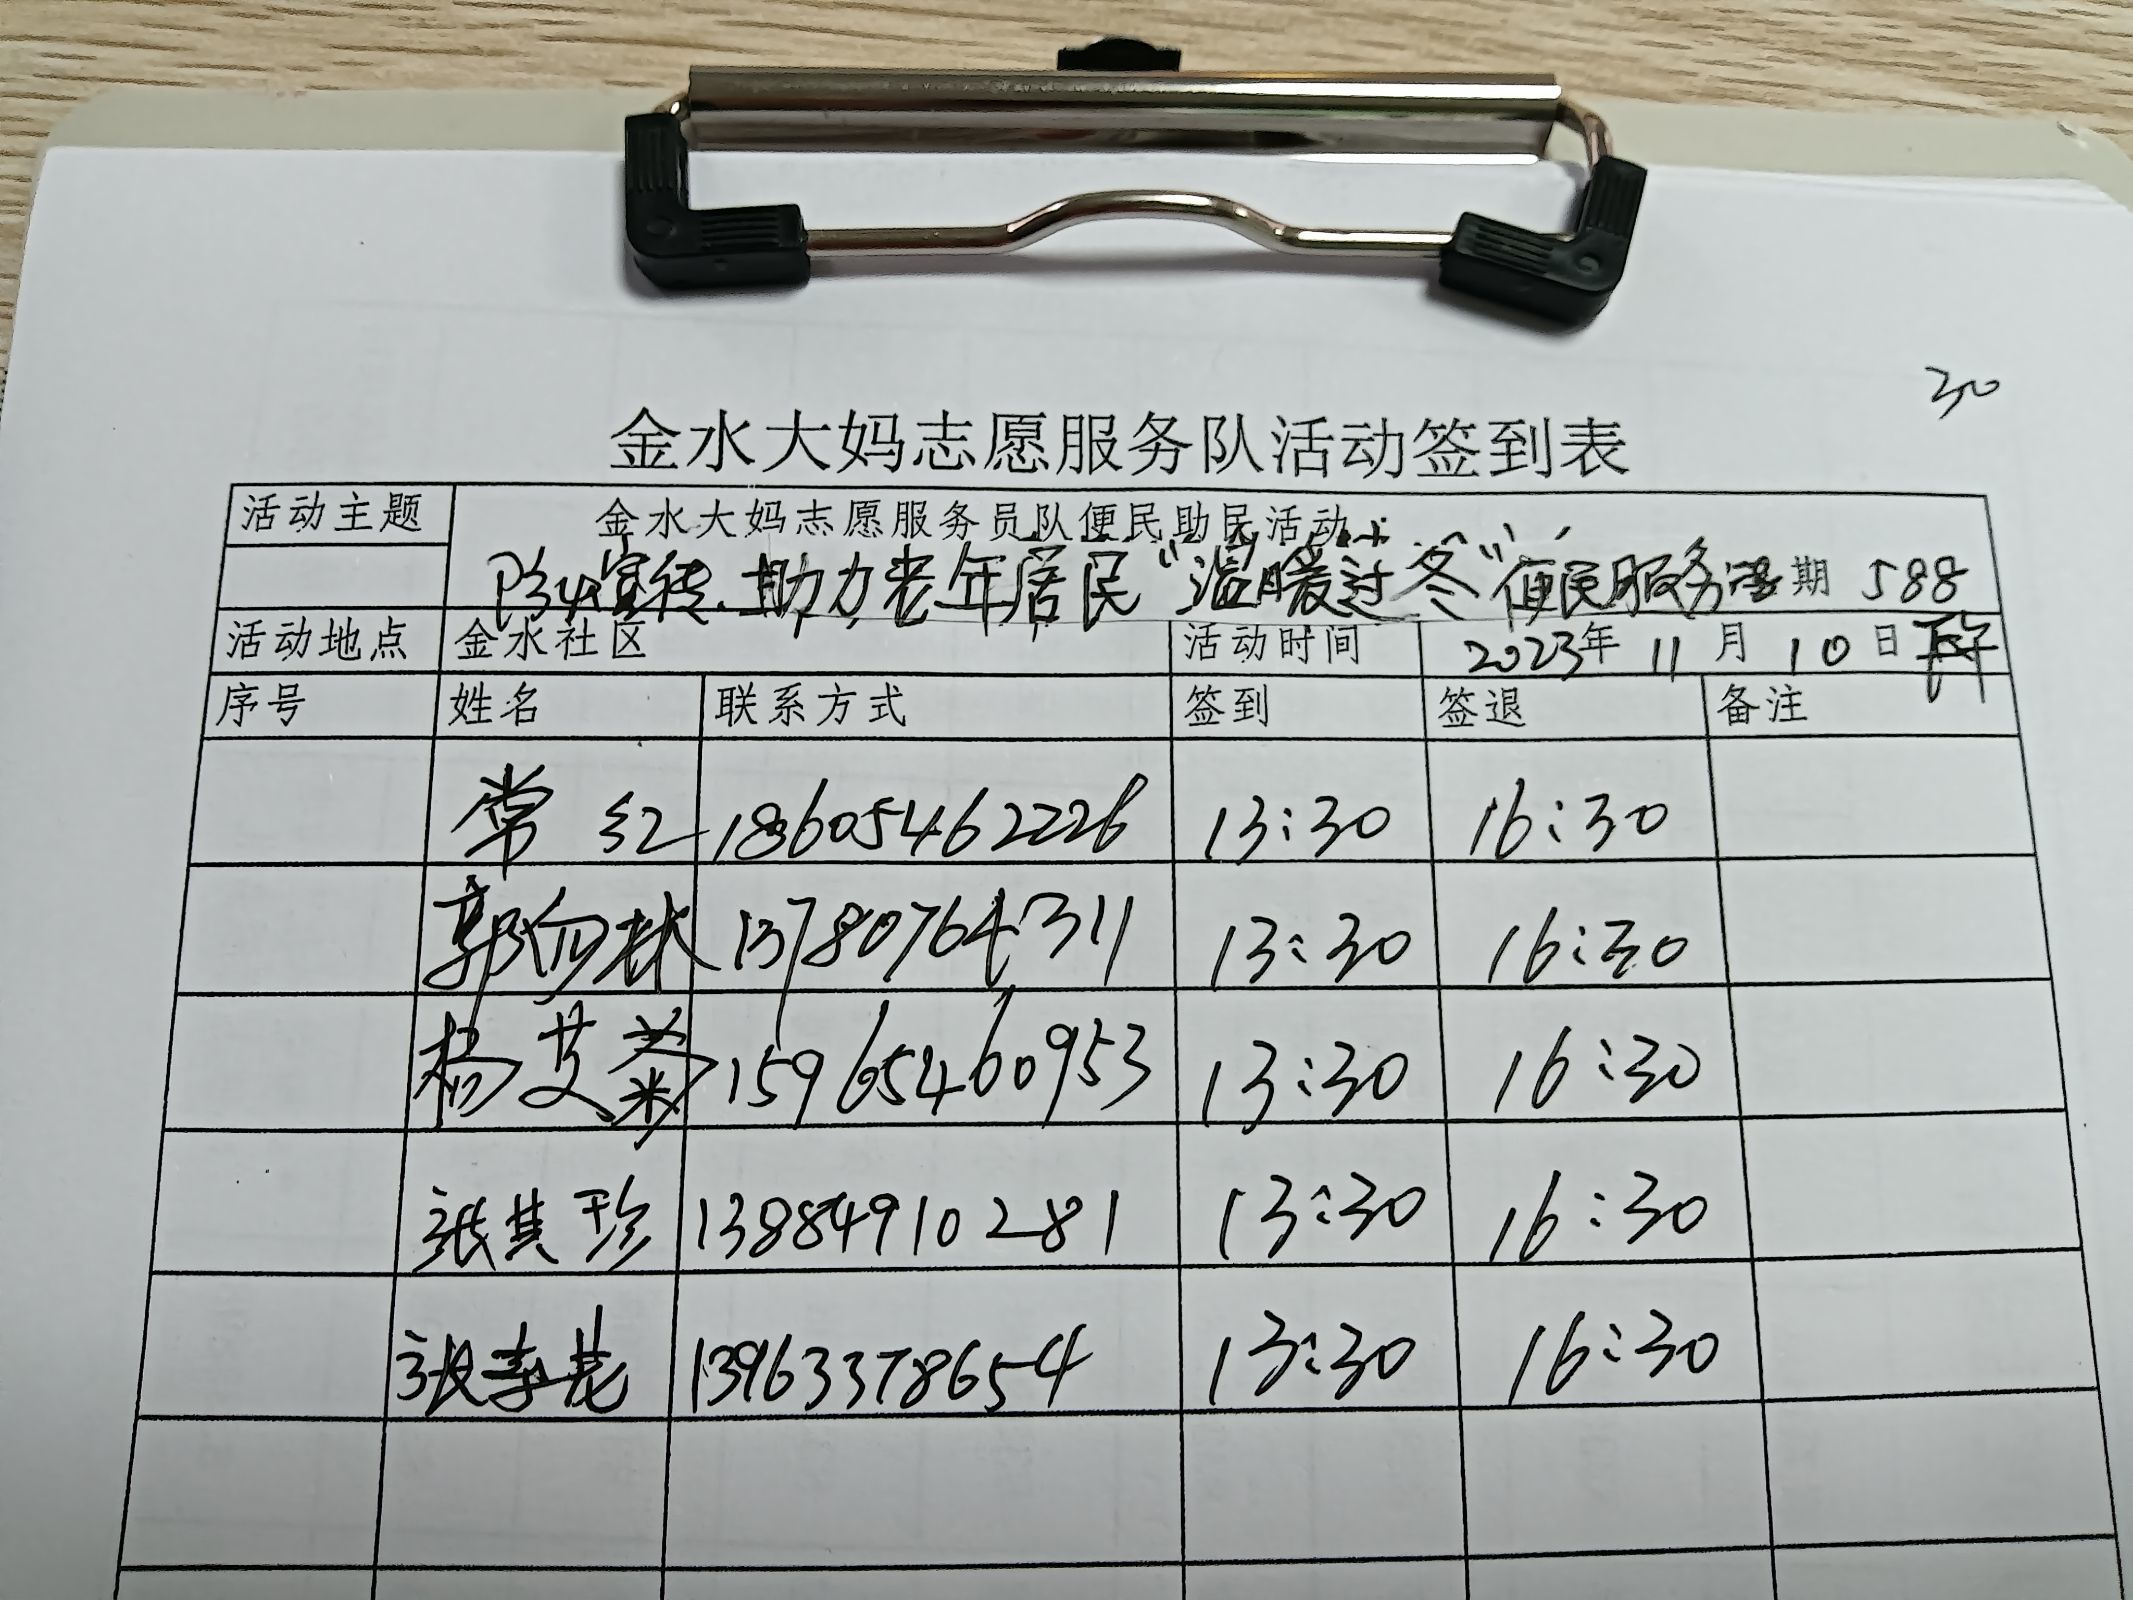 30
金水大妈志愿服务队活动签到表
活动主题 金水大妈志愿服务员队便民助民活动
防火宣传.助力老年居民“温暖过冬”便民服务 期 588
活动地点 金水社区 活动时间 2023年 11月 10日 下午
序号 姓名 联系方式 签到 签退 备注
常红 18605462226 13:30 16:30
郭 林 13780764311 13:30 16:30
杨艾菊 15965460953 13:30 16:30
张其珍 13884910281 13:30 16:30
张 花 13963378654 13:30 16:30